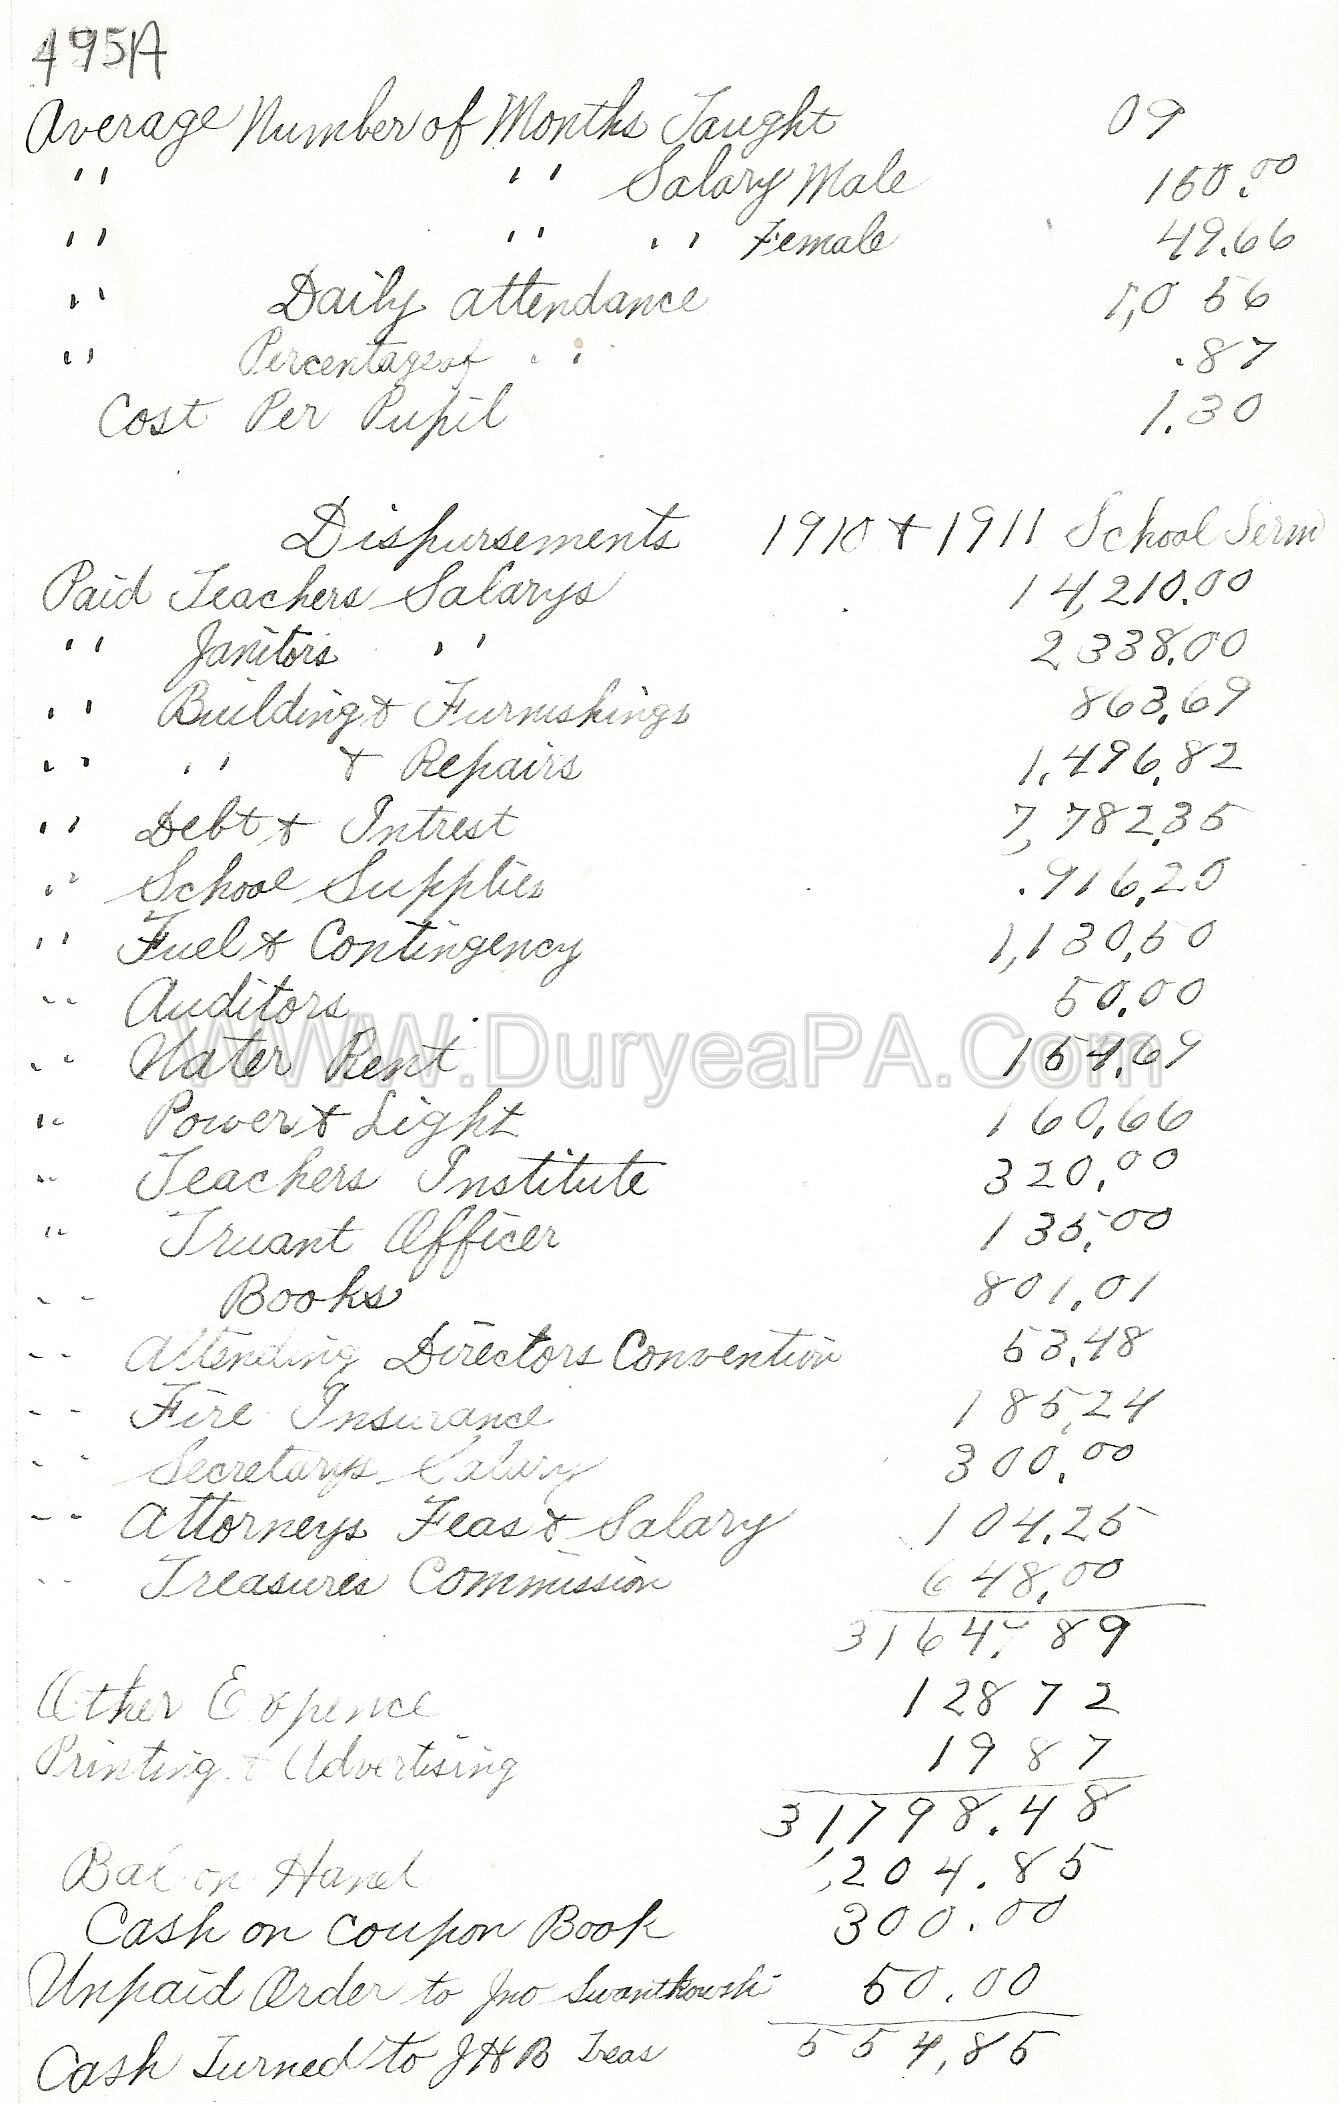 495A
Average Number of Months Taught 09
" " Salary Male 150.00
" " " Female 49.66
" Daily attendance 1,0 56
" Percentage of " .87
Cost Per Pupil 1.30
Dispursements 1910 + 1911 School Term
Paid Teachers Salarys 14,210.00
" Janitors " 2338.00
" Building & Furnishings 863.69
" " & Repairs 1,496.82
" Debt & Intrest 7,782.35
" School Supplies .916,20
" Fuel & Contingency 1,130,50
" Auditors 50.00
" Water Rent 154.69
" Power & Light 160,66
" Teachers Institute 320.00
" Truant Officer 135.00
" Books 801,01
" Attending Directors Convention 53.48
" Fire Insurance 185,24
" Secretarys Salary 300.00
" Attorneys Feas & Salary 104.25
" Treasures Commission 648.00
31647.89
Other Expence 128 72
Printing & Advertising 19 87
31,798.48
Bal on Hand 204.85
Cash on Coupon Book 300.00
Unpaid Order to Jno Swantkowski 50.00
Cash Turned to JHB Treas 554,85
WWW.DuryeaPA.Com